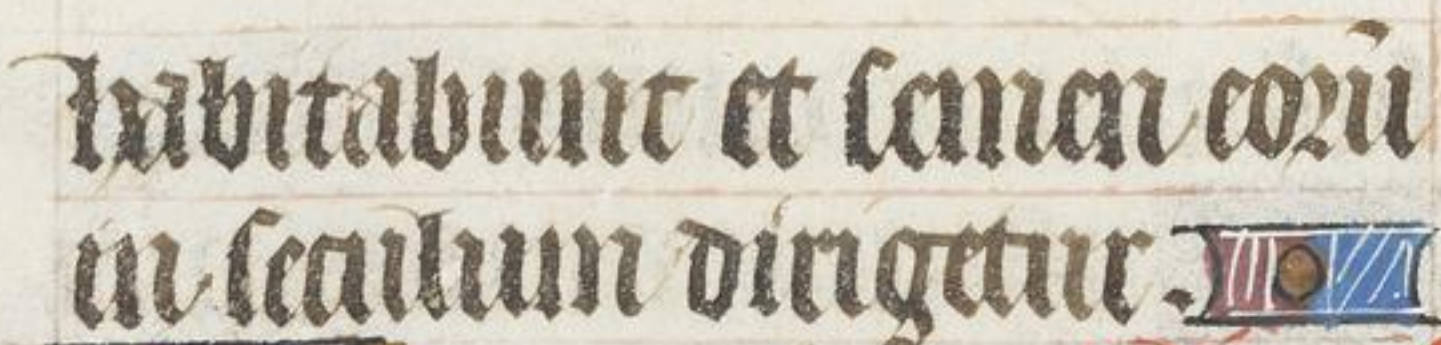 habitabunt et semen eorū
in seculum dirigetur.